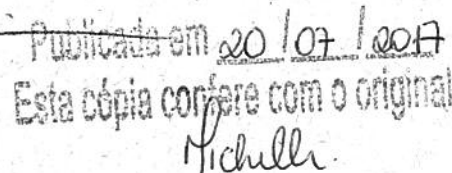 Publicado em 20/07/2017
Esta cópia confere com o original
Michelli.